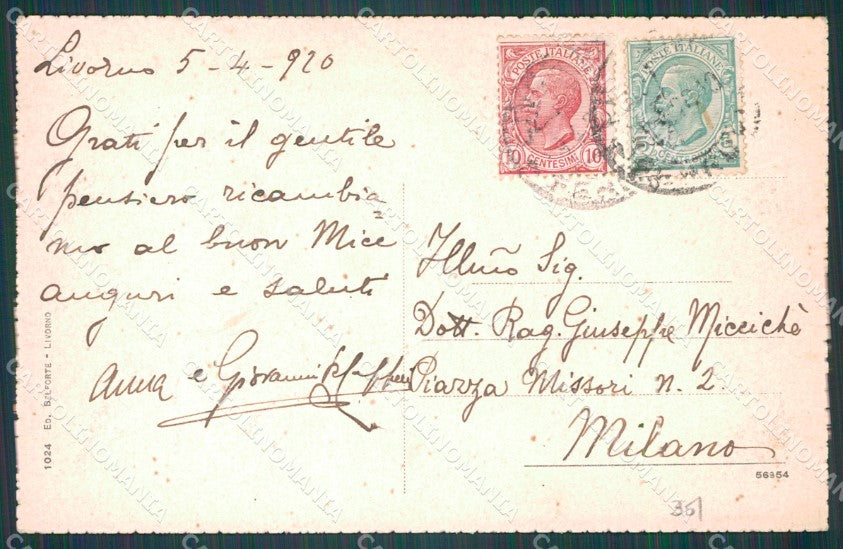 Livorno 5-4-920
Grati per il gentile
pensiero ricambia=
mo al buon Mice
auguri e saluti
Anna e Giovanni
Illmo Sig.
Dott. Rag. Giuseppe Miccichè
Piazza Missori n. 2
Milano
POSTE ITALIANE
10 CENTESIMI 10
POSTE ITALIANE
5
1024 ED. BELFORTE - LIVORNO
56954
36
CARTOLINOMANIA